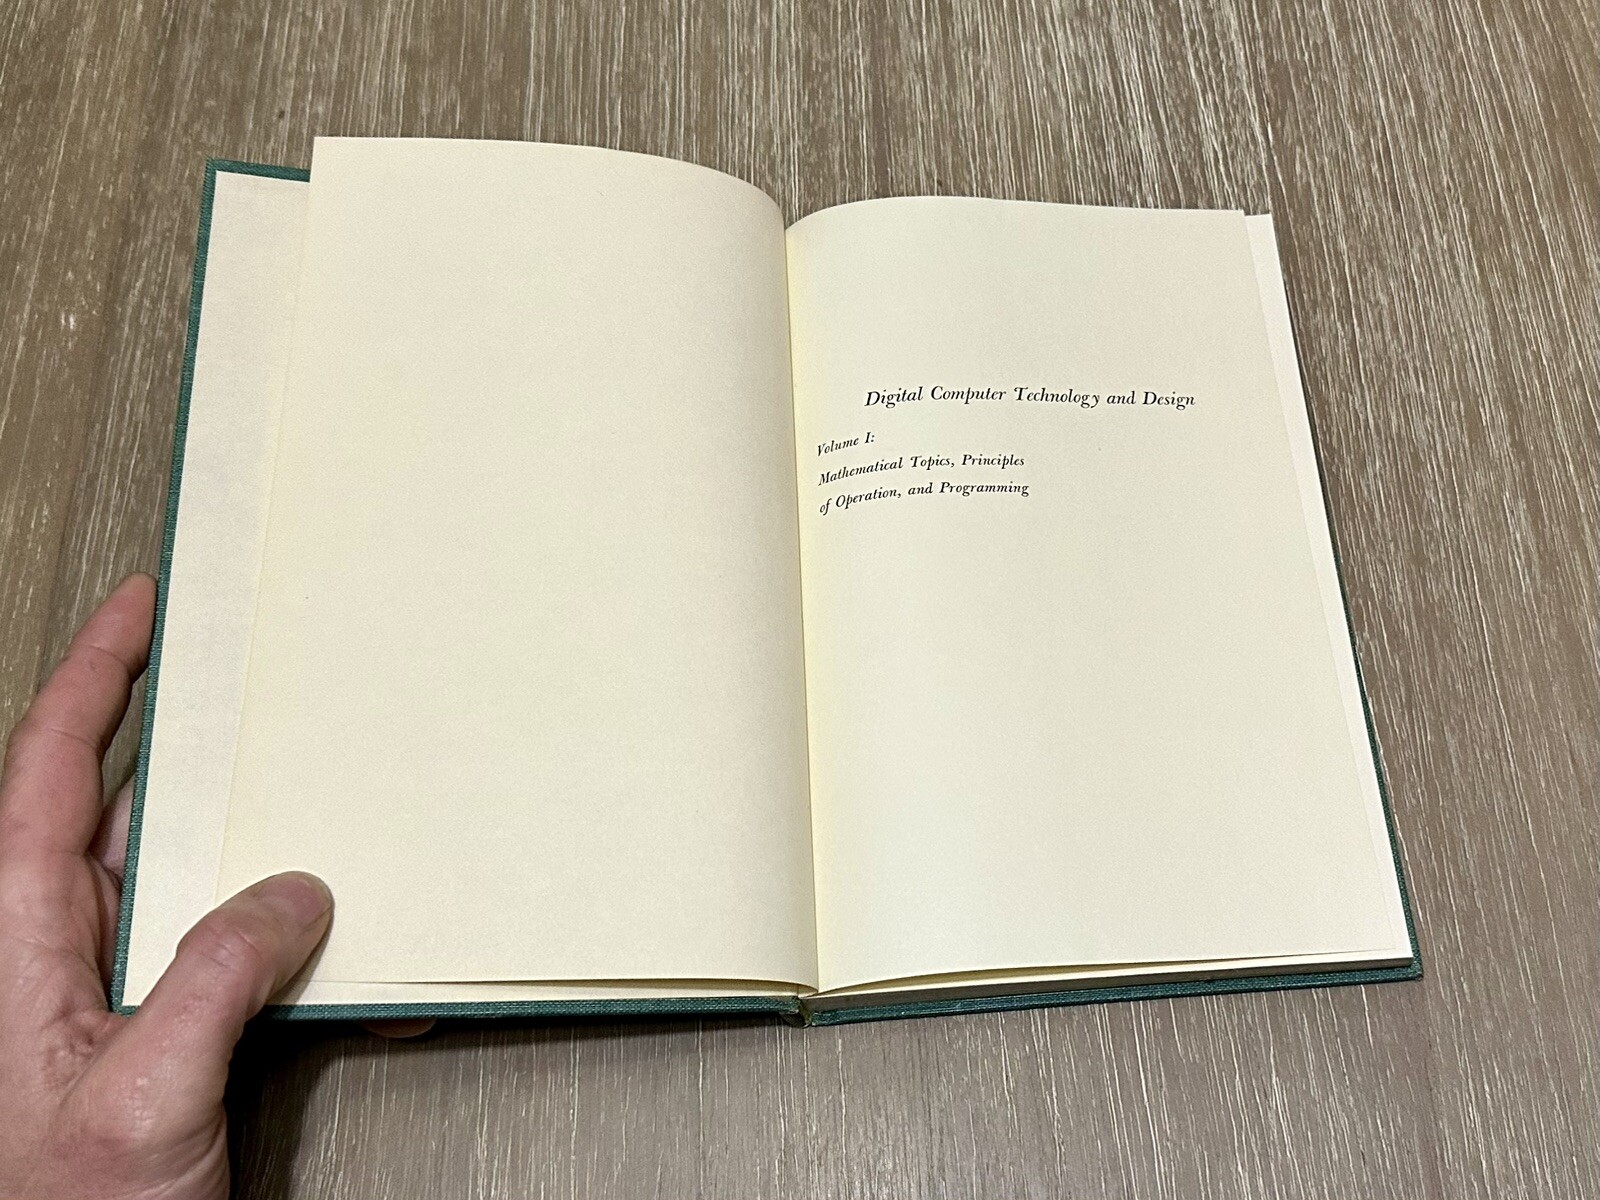 Digital Computer Technology and Design
Volume I:
Mathematical Topics, Principles
of Operation, and Programming